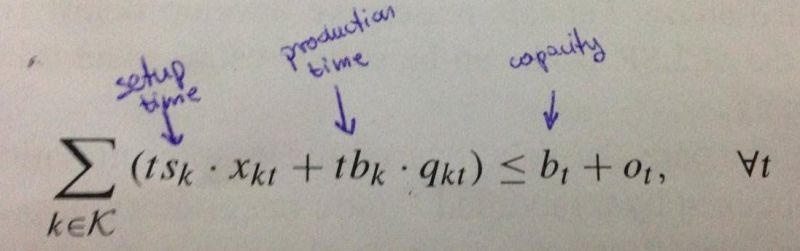 setup time
production time
capacity
∑ (ts_k · x_kt + tb_k · q_kt) ≤ b_t + o_t, ∀t
k∈𝒦